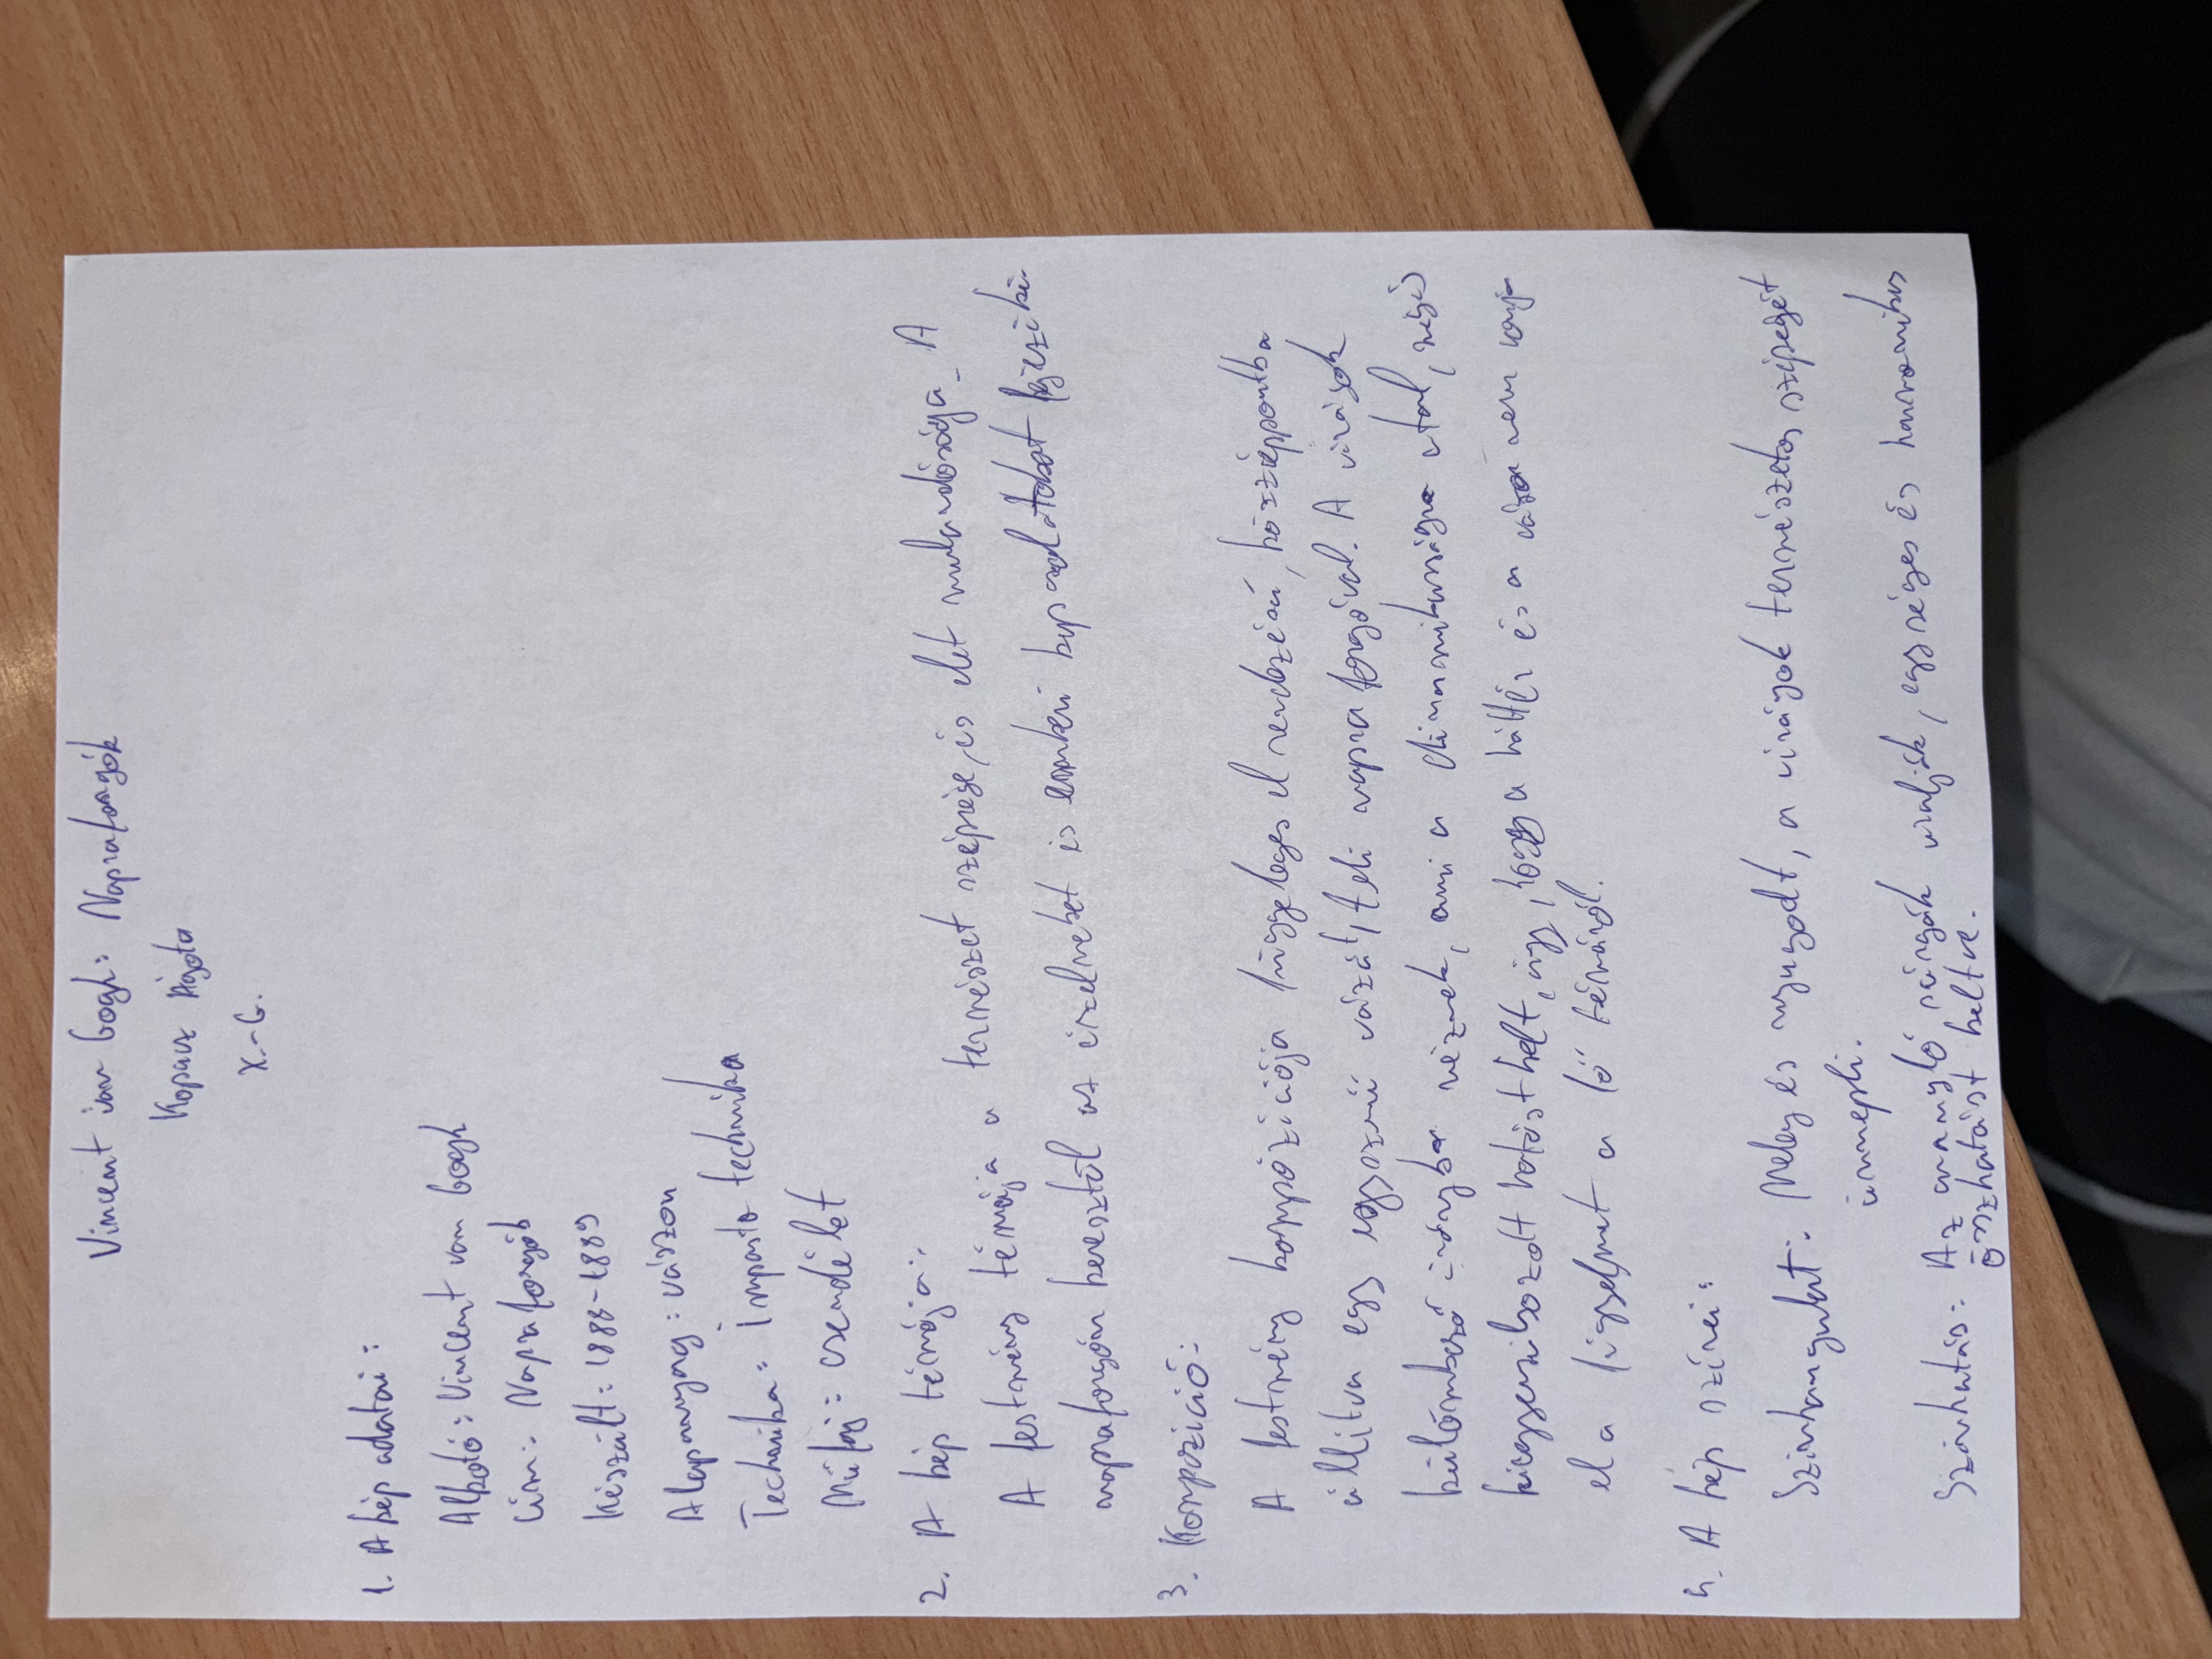 Vincent van Gogh: Napraforgók
Kopasz Ágota
X.-G.
1. A kép adatai:
Alkotó: Vincent van Gogh
Cím: Napraforgók
Készült: 1888-1889
Alapanyag: vászon
Technika: Impasto technika
Műfaj: csendélet
2. A kép témája:
A festmény témája a természet szépsége, és élet mulandósága. A
napraforgón keresztül az érzelmeket és emberi kapcsolatokat fejezi ki.
3. Kompozíció:
A festmény kompozíciója függőleges elrendezésű, középpontba
állítva egy egyszerű vázát, teli napraforgóval. A virágok
különböző irányba néznek, ami a dinamikusságra utal, mégis
kiegyensúlyozott hatást kelt, úgy, hogy a háttér és a váza nem vonja
el a figyelmet a fő témáról.
4. A kép színei:
Színhangulat: Meleg és nyugodt, a virágok természetes szépségét
ünnepli.
Színhatás: Az aranyló sárgák uralják, egységes és harmonikus
összhatást keltve.